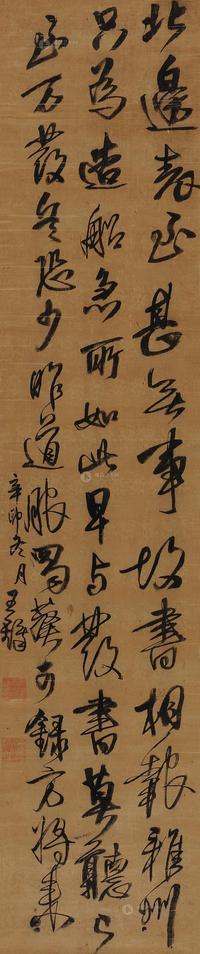 北邊表至甚無事故書相報雅州
只為造船急所如此早与發書莫聽之
至万發兵恐少昨道服蜀葵可錄方將來
辛卯冬月
王鐸